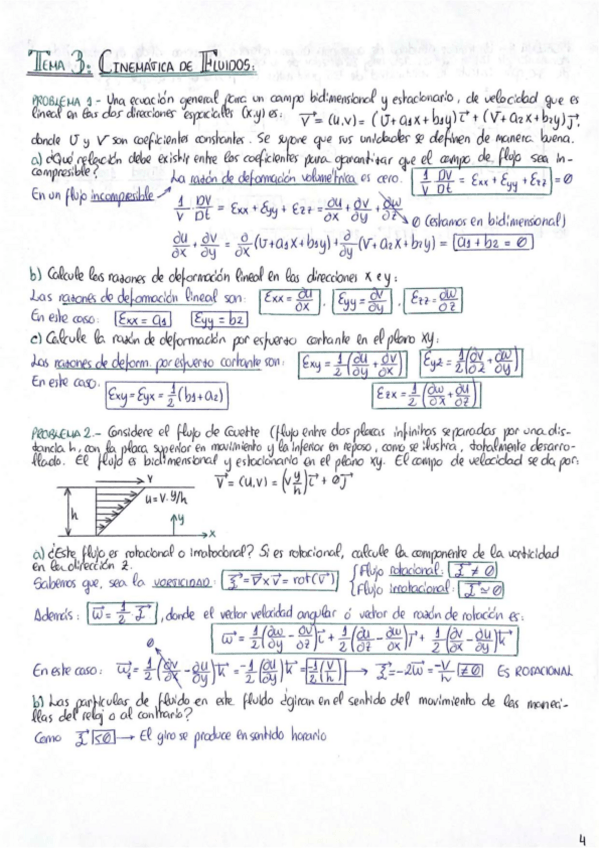 TEMA 3: CINEMÁTICA DE FLUIDOS:
PROBLEMA 1.- Una ecuación general para un campo bidimensional y estacionario, de velocidad que es
lineal en las dos direcciones espaciales (x,y) es: V⃗ = (u,v) = (U+a₁x+b₁y)i⃗ + (V+a₂x+b₂y)j⃗,
donde U y V son coeficientes constantes. Se supone que sus unidades se definen de manera buena.
a) ¿Qué relación debe existir entre los coeficientes para garantizar que el campo de flujo sea in-
compresible? La razón de deformación volumétrica es cero. 1/V DV/Dt = Exx + Eyy + Ezz = 0
En un flujo incompresible 1/V · DV/Dt = Exx + Eyy + Ezz = ∂u/∂x + ∂v/∂y + ∂w/∂z
0 (estamos en bidimensional)
∂u/∂x + ∂v/∂y = ∂/∂x (U+a₁x+b₁y) + ∂/∂y (V+a₂x+b₂y) = a₁ + b₂ = 0
b) Calcule las razones de deformación lineal en las direcciones x e y:
Las razones de deformación lineal son: Exx = ∂u/∂x , Eyy = ∂v/∂y , Ezz = ∂w/∂z
En este caso: Exx = a₁ Eyy = b₂
c) Calcule la razón de deformación por esfuerzo cortante en el plano xy:
Las razones de deform. por esfuerzo cortante son: Exy = 1/2 (∂u/∂y + ∂v/∂x) Eyz = 1/2 (∂v/∂z + ∂w/∂y)
En este caso: Exy = Eyx = 1/2 (b₁+a₂) Ezx = 1/2 (∂w/∂x + ∂u/∂z)
PROBLEMA 2.- Considere el flujo de Couette (flujo entre dos placas infinitas separadas por una dis-
tancia h, con la placa superior en movimiento y la inferior en reposo, como se ilustra, totalmente desarro-
llado. El flujo es bidimensional y estacionario en el plano xy. El campo de velocidad se da por:
V⃗ = (u,v) = (V y/h) i⃗ + 0 j⃗
V
u = V·y/h
h
y
x
a) ¿Este flujo es rotacional o irrotacional? Si es rotacional, calcule la componente de la vorticidad
en la dirección z.
Sabemos que, sea la VORTICIDAD: ξ⃗ = ∇ x V⃗ = rot(V⃗) { Flujo rotacional: ξ⃗ ≠ 0
Flujo irrotacional: ξ⃗ ≃ 0
Además: w⃗ = 1/2 ξ⃗ , donde el vector velocidad angular ó vector de razón de rotación es:
w⃗ = 1/2 (∂w/∂y − ∂v/∂z) i⃗ + 1/2 (∂u/∂z − ∂w/∂x) j⃗ + 1/2 (∂v/∂x − ∂u/∂y) k⃗
0
En este caso: w⃗ = 1/2 (∂v/∂x − ∂u/∂y) k⃗ = −1/2 (∂u/∂y) k⃗ = −1/2 (V/h) → ξ⃗ = −2w⃗ = −V/h ≠ 0 ES ROTACIONAL
b) Las partículas de fluido en este fluido ¿giran en el sentido del movimiento de las maneci-
llas del reloj o al contrario?
Como ξ⃗ < 0 → El giro se produce en sentido horario
4